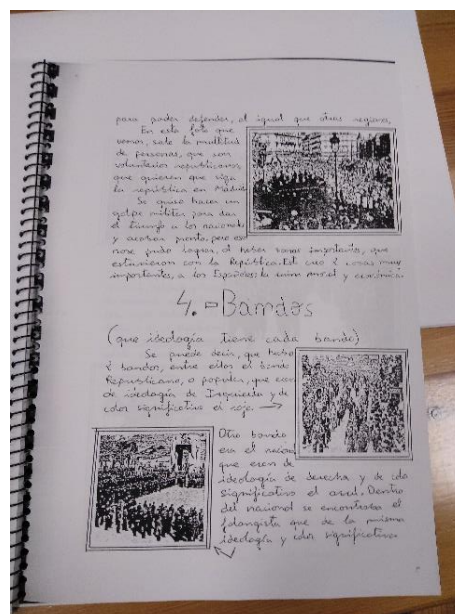 para poder defender, al igual que otras regiones,
En esta foto que
vemos, sale la multitud
de personas, que son
voluntarios republicanos,
que quieren que siga
la república en Madrid
Se quiso hacer un
golpe militar para dar
el triunfo a los nacionales
y acabar pronto, pero eso
nose pudo lograr, al haber zonas importantes, que
estuvieron con la República. Est creó 2 cosas muy
importantes, a los Españoles; la ruina moral y económica.
4.=Bandos
(que ideología tiene cada bando)
Se puede decir, que hubo
2 bandos, entre ellos el bando
Republicano, o popular, que eran
de ideología de Izquierda y de
color significativo el rojo. →
Otro bando
era el nacional
que eran de
ideología de derecha y de colo
significativo el azul. Dentro
del nacional se encontraba el
falangista que de la misma
ideología y color significativo